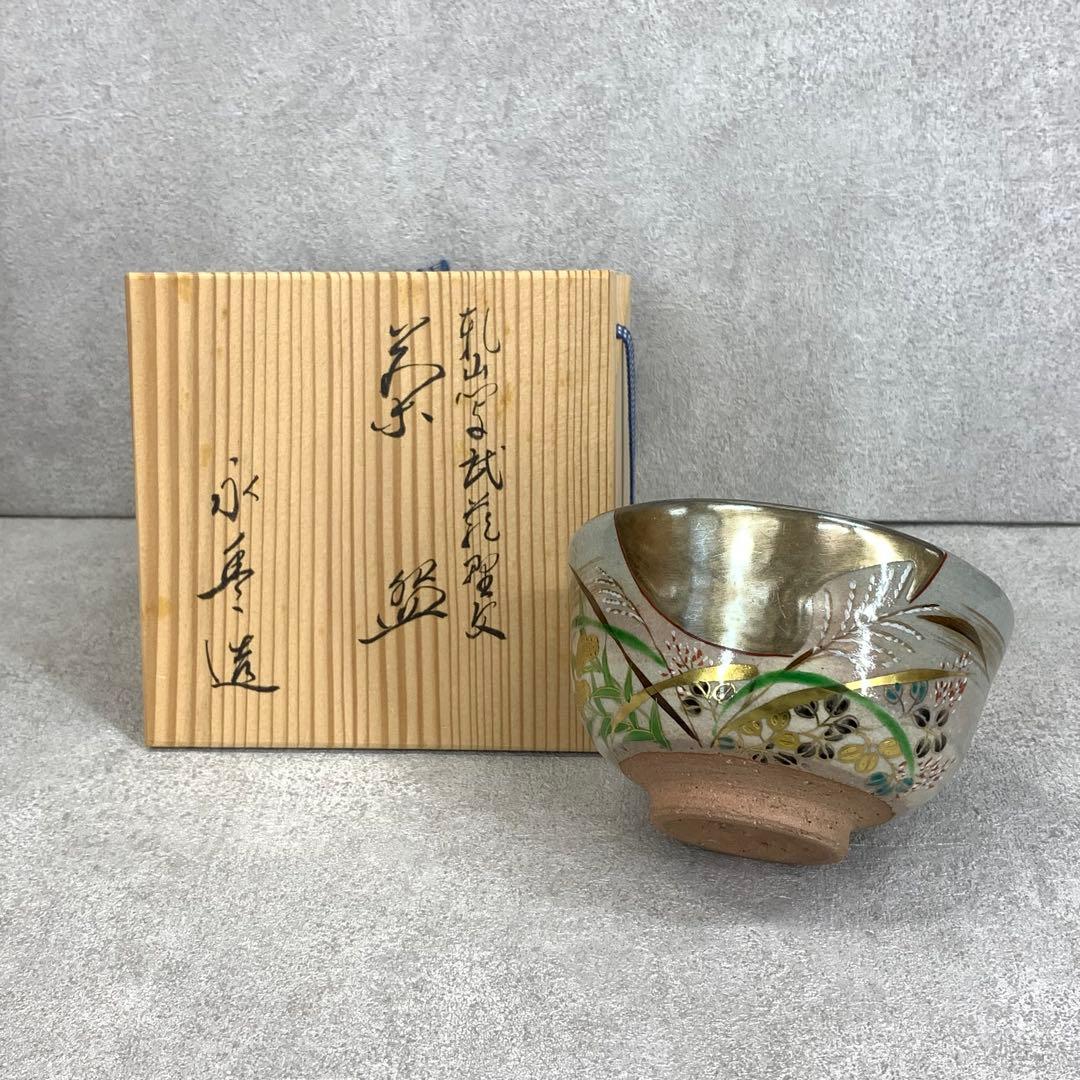 乾山写武蔵野文
茶盌
永寿造